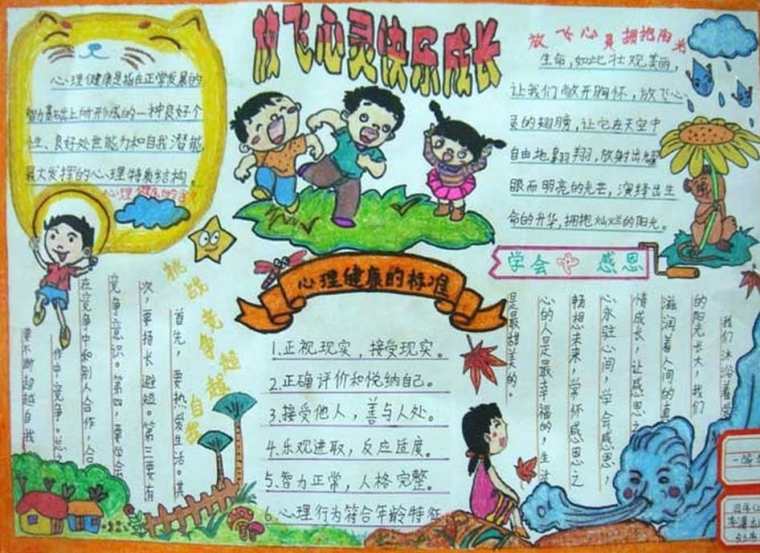 放飞心灵快乐成长
心理健康是指在正常发展的
智力基础上所形成的一种良好个
性、良好处世能力和自我潜能
最大发挥的心理特质结构。
放飞心灵拥抱阳光
生命,如此壮观美丽,
让我们敞开胸怀,放飞心
灵的翅膀,让它在天空中
自由地翱翔,放射出耀
眼而明亮的光芒,演绎出生
命的升华,拥抱灿烂的阳光。
挑战竞争超越自我
首先,要热爱生活。其
次,要扬长避短。第三要有
竞争意识。第四,要学会
在竞争中和别人合作,合
作中竞争。总之
要不断超越自我
心理健康的标准
1.正视现实,接受现实。
2.正确评价和悦纳自己。
3.接受他人,善与人处。
4.乐观进取,反应适度。
5.智力正常,人格完整。
6.心理行为符合年龄特征
学会 感恩
我们沐浴着
的阳光长大,我们
滋润着人间的真
情成长,让感恩之
心永驻心间,学会感恩,
畅想未来,常怀感恩之
心的人是最幸福的,生活
是最甜美的。